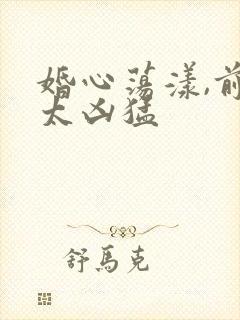 婚心荡漾,前
太凶猛
舒馬克